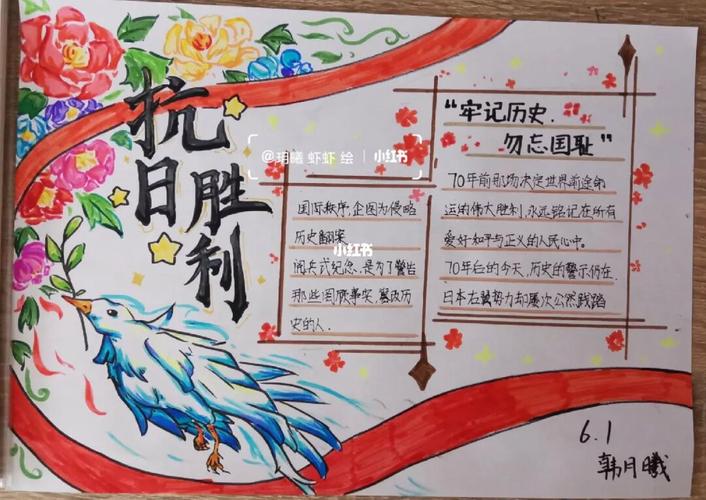 抗日
胜利
@玥曦 虾虾 绘 | 小红书
小红书
“牢记历史.
勿忘国耻”
70年前那场决定世界前途命
运的伟大胜利,永远铭记在所有
爱好和平与正义的人民心中。
70年后的今天,历史的警示仍在.
日本右翼势力却屡次公然践踏
国际秩序,企图为侵略
历史翻案
阅兵式纪念,是为了警告
那些罔顾事实、篡改历
史的人.
6.1
韩月曦